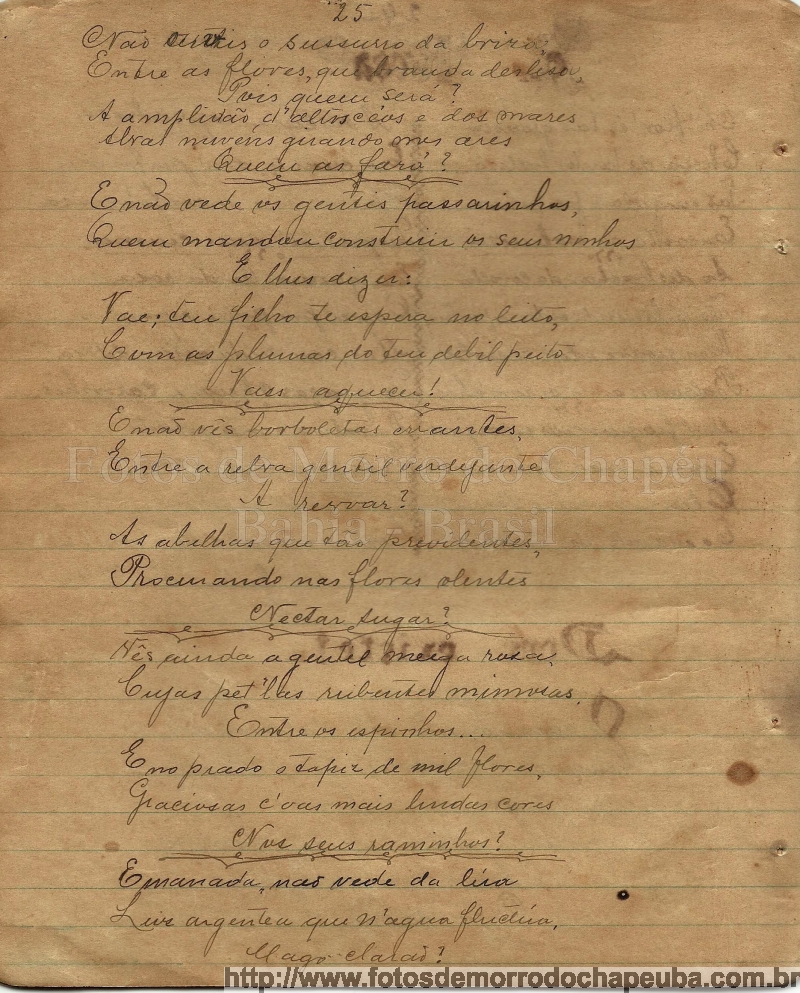 25
Não sentis o sussurro da briza,
Entre as flores, que branda deslisa,
Pois quem será?
A amplidão d'altos céos e dos mares
Alvas nuvens girando nos ares
Quem as fará?
E não vede os gentis passarinhos,
Quem mandou construir os seus ninhos
E lhes dizer:
Vae; teu filho te espera no leito,
Com as plumas do teu debil peito
Vaes aquecer!
E não vês borboletas errantes,
Entre a relva gentil verdejante
A revoar?
As abelhas que são previdentes,
Procurando nas flores olentes
Nectar sugar?
Vês ainda a gentil meiga rosa,
Cujas pet'las rubente mimosas,
Entre os espinhos...
E no prado o tapiz de mil flores,
Graciosas c'oas mais lindas cores
Nos seus raminhos?
Emanada, não vede da lua
Luz argentea que n'agua fluctúa,
Mago clarão?
Fotos de Morro do Chapéu
Bahia - Brasil
http://www.fotosdemorrodochapeuba.com.br